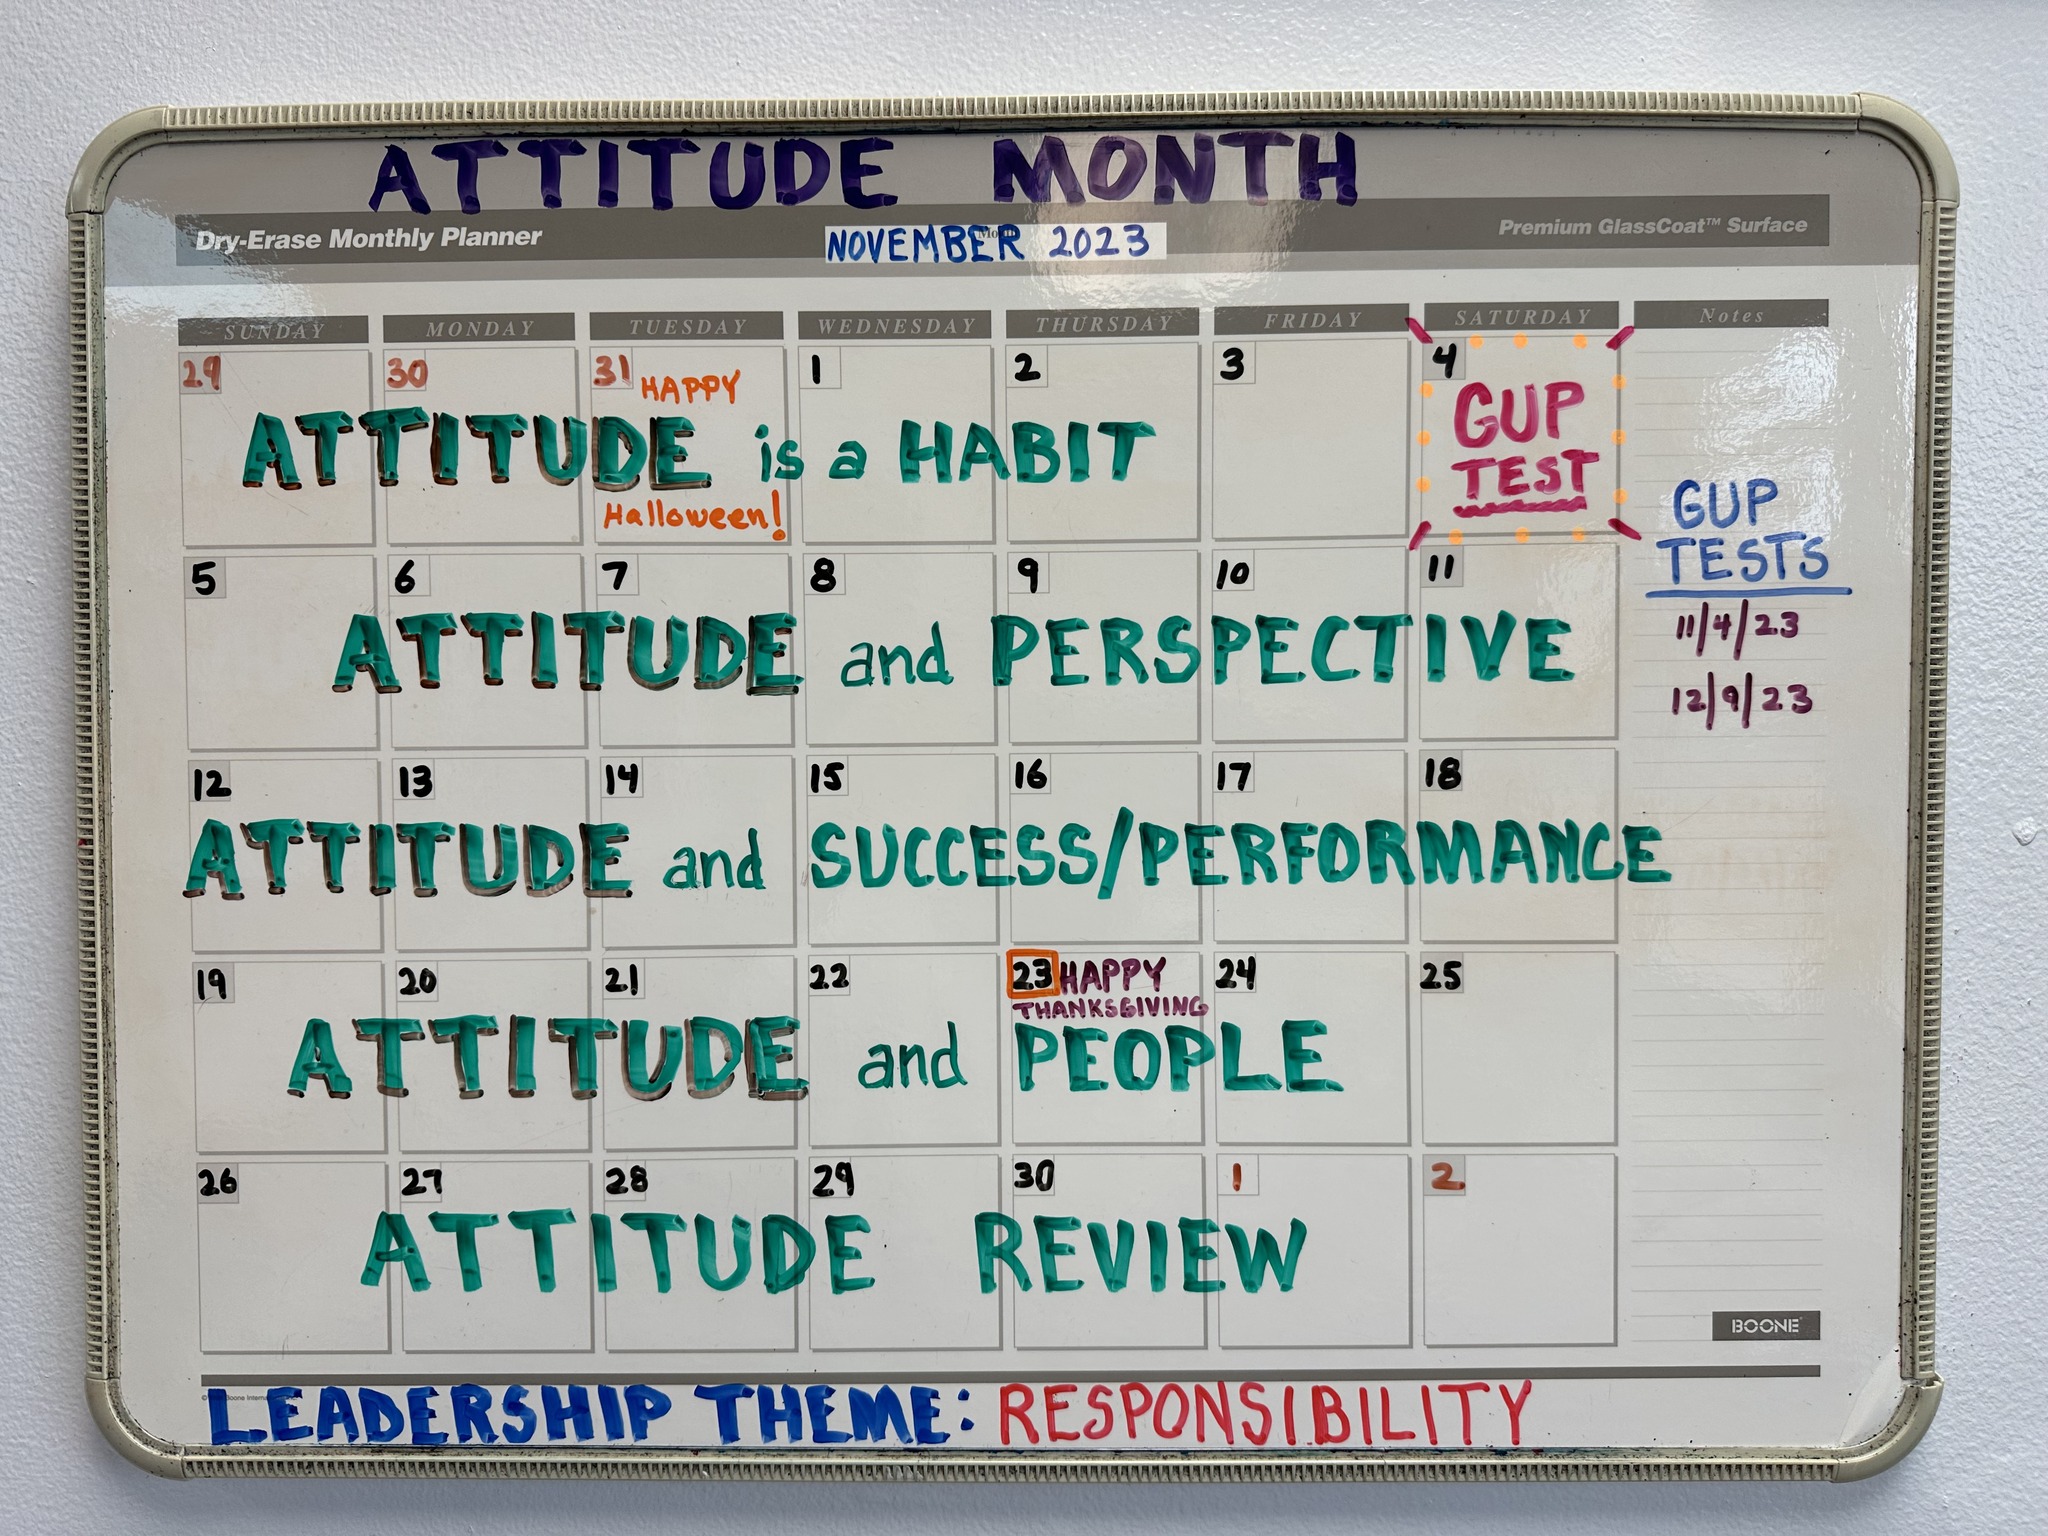 ATTITUDE MONTH
Dry-Erase Monthly Planner
NOVEMBER 2023
Premium GlassCoat™ Surface
SUNDAY MONDAY TUESDAY WEDNESDAY THURSDAY FRIDAY SATURDAY Notes
29 30 31 1 2 3 4
HAPPY
ATTITUDE is a HABIT
Halloween!
GUP
TEST
GUP
TESTS
11/4/23
12/9/23
5 6 7 8 9 10 11
ATTITUDE and PERSPECTIVE
12 13 14 15 16 17 18
ATTITUDE and SUCCESS/PERFORMANCE
19 20 21 22 23 24 25
HAPPY
THANKSGIVING
ATTITUDE and PEOPLE
26 27 28 29 30 1 2
ATTITUDE REVIEW
BOONE
LEADERSHIP THEME: RESPONSIBILITY